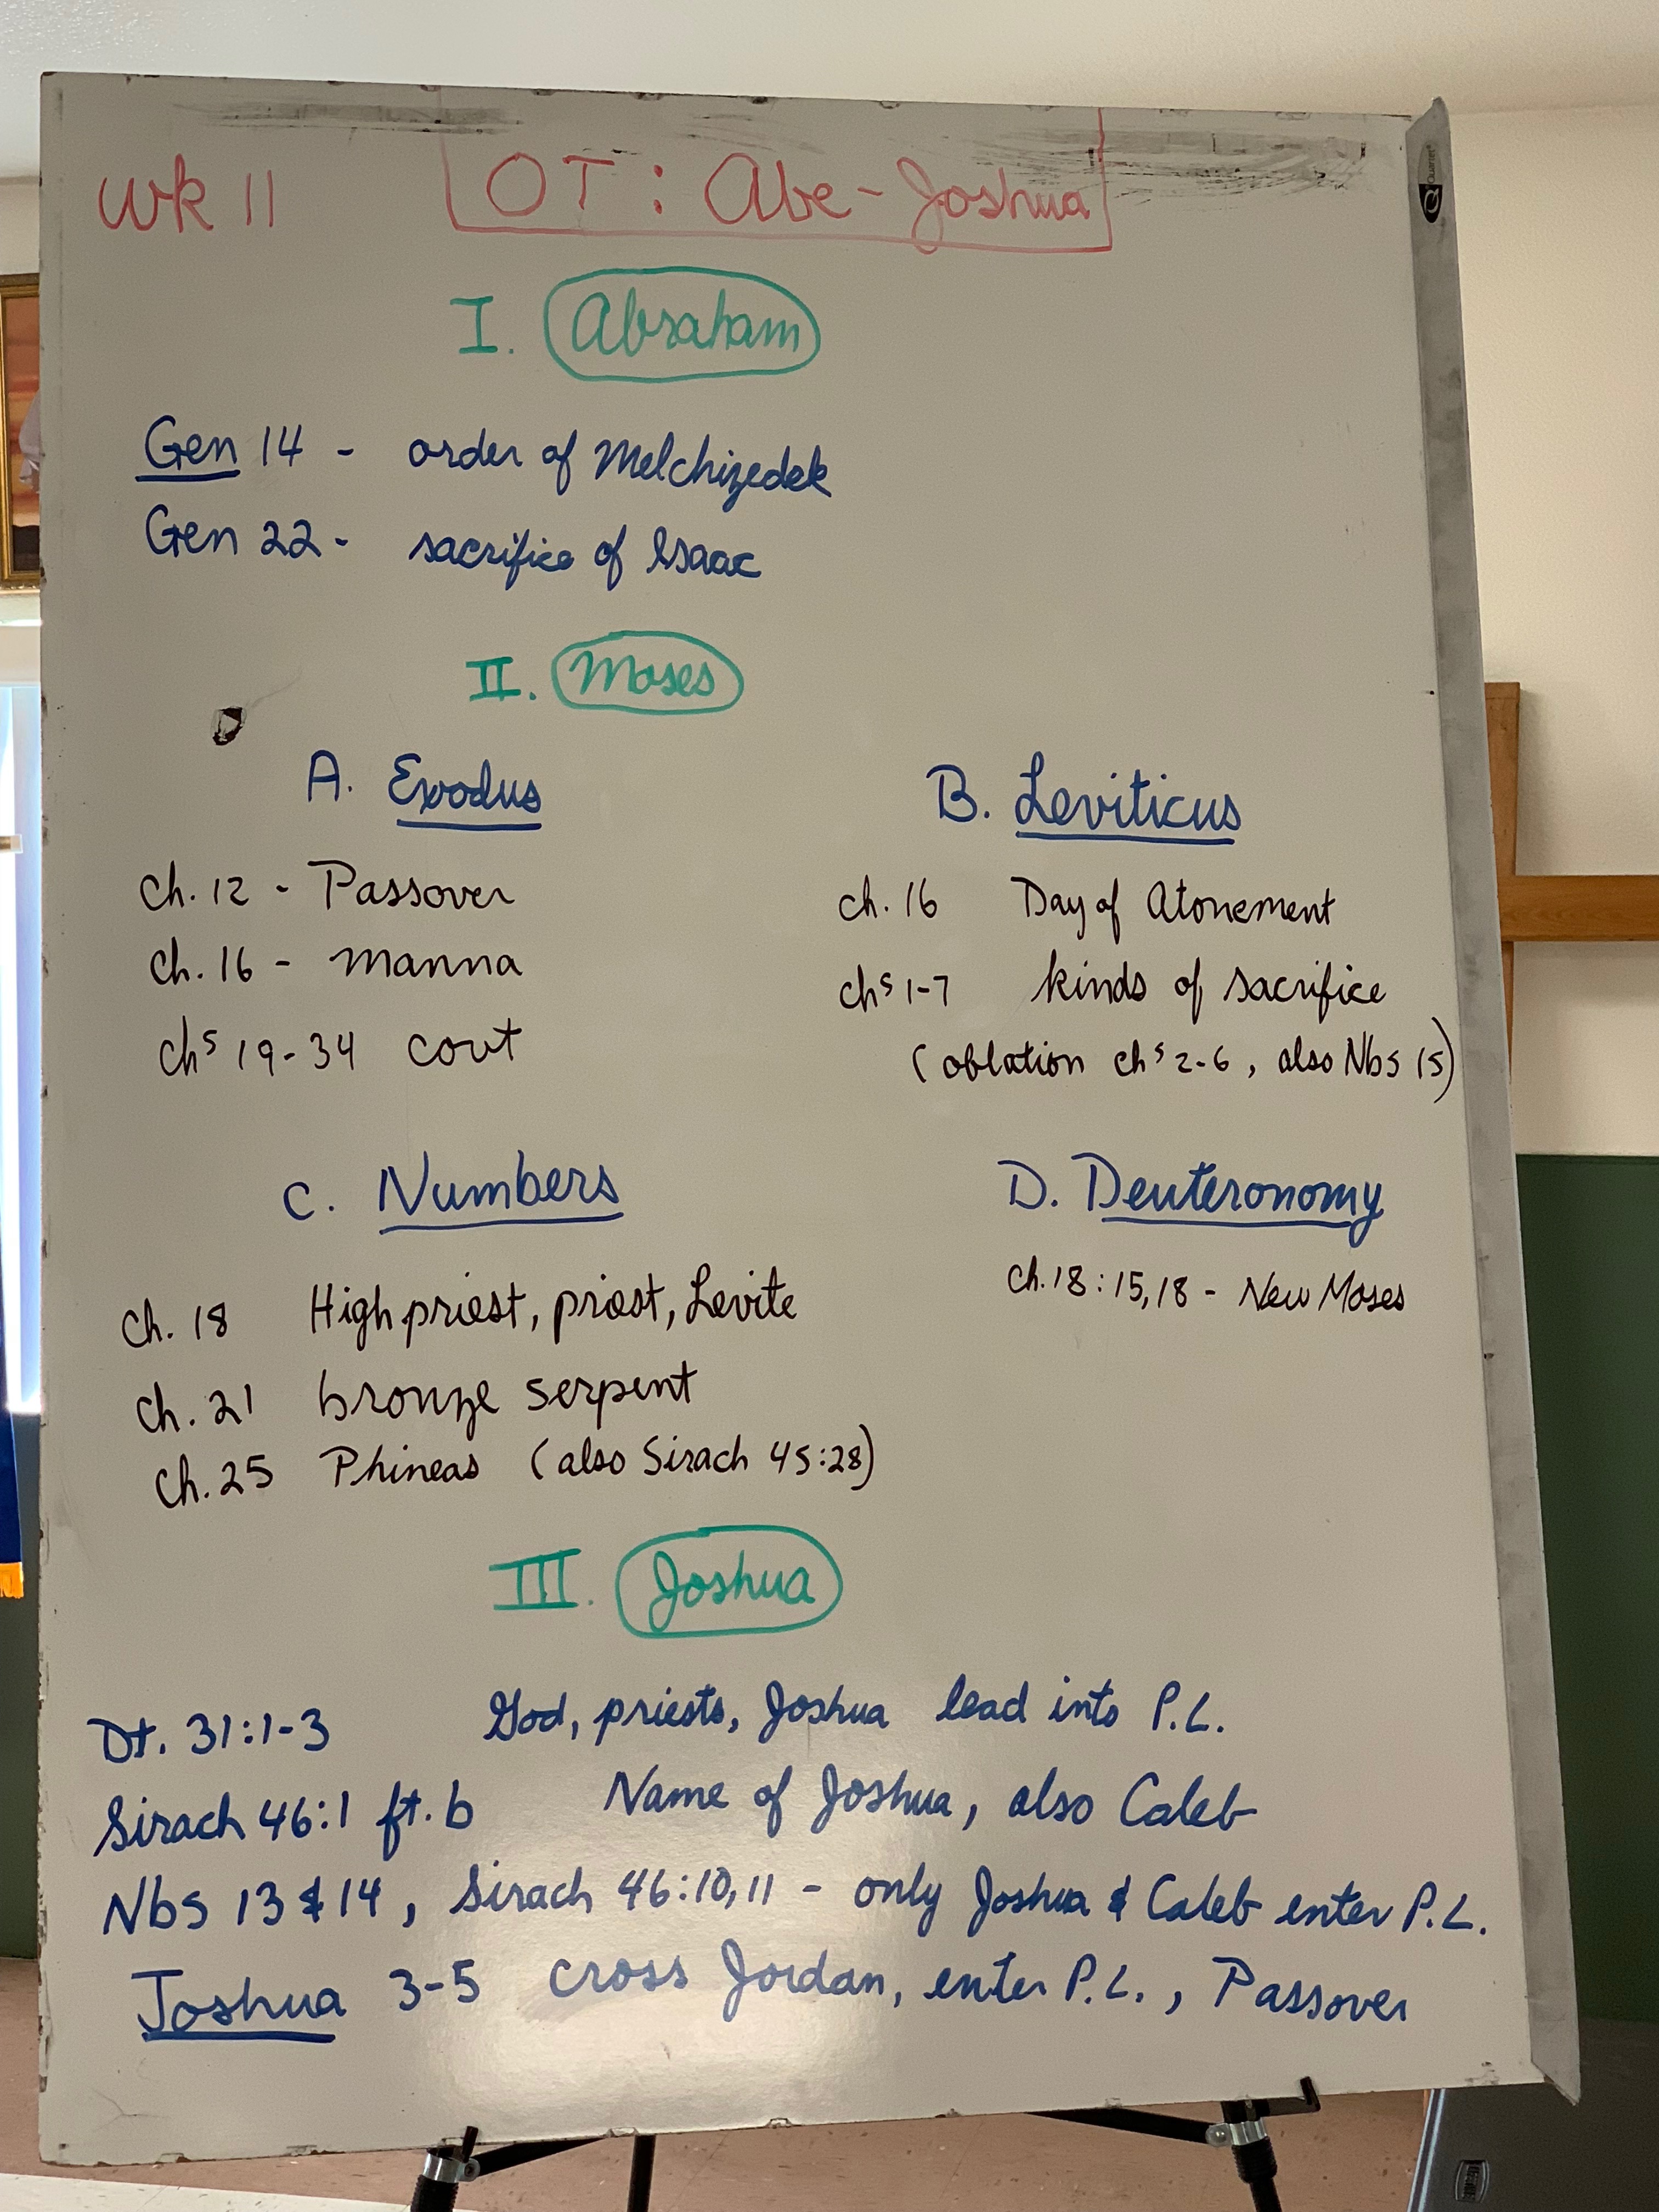 Wk 11 OT: Abe-Joshua
I. Abraham
Gen 14 - order of Melchizedek
Gen 22 - sacrifice of Isaac
II. Moses
A. Exodus
ch. 12 - Passover
ch. 16 - manna
chs 19-34 covt
B. Leviticus
ch. 16 Day of Atonement
chs 1-7 kinds of sacrifice
(oblation chs 2-6, also Nbs 15)
C. Numbers
ch. 18 High priest, priest, Levite
ch. 21 bronze serpent
ch. 25 Phineas (also Sirach 45:28)
D. Deuteronomy
ch. 18:15,18 - New Moses
III. Joshua
Dt. 31:1-3 God, priests, Joshua lead into P.L.
Sirach 46:1 ft. b Name of Joshua, also Caleb
Nbs 13 & 14, Sirach 46:10,11 - only Joshua & Caleb enter P.L.
Joshua 3-5 cross Jordan, enter P.L., Passover
Quartet